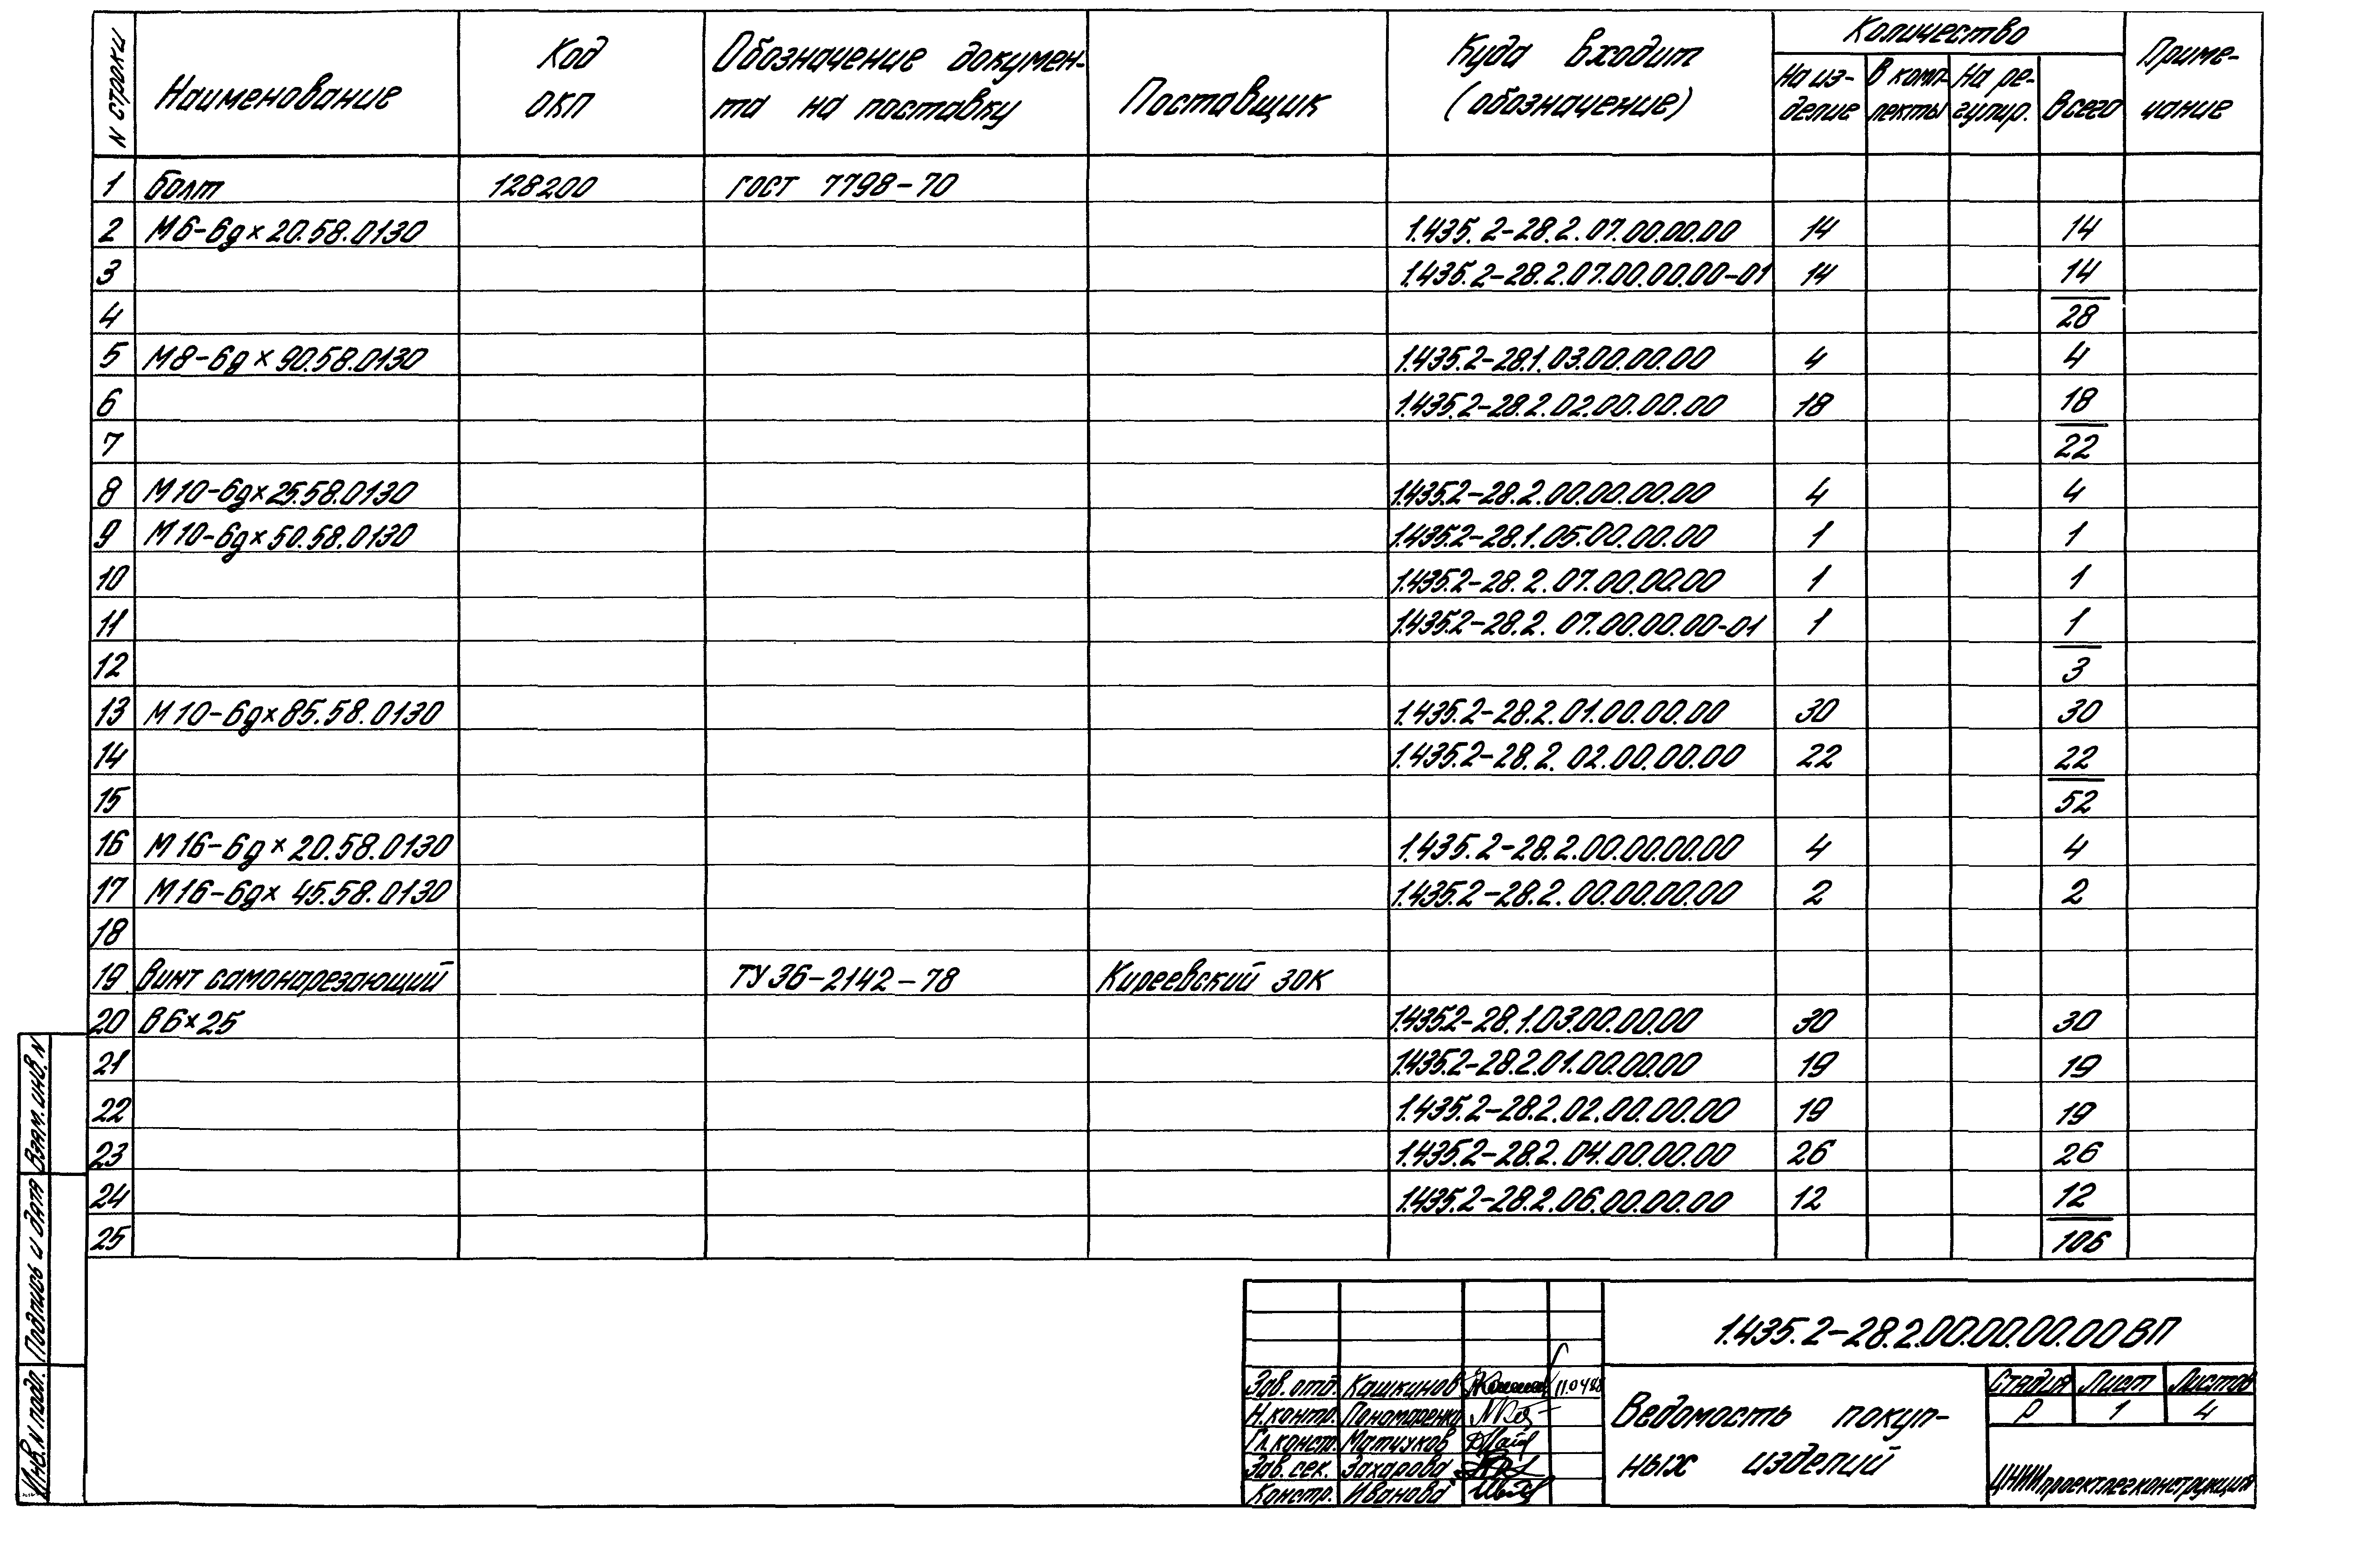 N строки
Наименование
Код
ОКП
Обозначение докумен-
та на поставку
Поставщик
Куда входит
(обозначение)
Количество
На из-
делие
В комп-
лекты
На ре-
гулир.
Всего
Приме-
чание
1 Болт 128200 ГОСТ 7798-70
2 М6-6gх20.58.0130 1.435.2-28.2.07.00.00.00 14 14
3 1.435.2-28.2.07.00.00.00-01 14 14
4 28
5 М8-6gх90.58.0130 1.435.2-28.1.03.00.00.00 4 4
6 1.435.2-28.2.02.00.00.00 18 18
7 22
8 М10-6gх25.58.0130 1.435.2-28.2.00.00.00.00 4 4
9 М10-6gх50.58.0130 1.435.2-28.1.05.00.00.00 1 1
10 1.435.2-28.2.07.00.00.00 1 1
11 1.435.2-28.2.07.00.00.00-01 1 1
12 3
13 М10-6gх85.58.0130 1.435.2-28.2.01.00.00.00 30 30
14 1.435.2-28.2.02.00.00.00 22 22
15 52
16 М16-6gх20.58.0130 1.435.2-28.2.00.00.00.00 4 4
17 М16-6gх45.58.0130 1.435.2-28.2.00.00.00.00 2 2
18
19 Винт самонарезающий ТУ 36-2142-78 Киреевский ЗОК
20 В6х25 1.435.2-28.1.03.00.00.00 30 30
21 1.435.2-28.2.01.00.00.00 19 19
22 1.435.2-28.2.02.00.00.00 19 19
23 1.435.2-28.2.04.00.00.00 26 26
24 1.435.2-28.2.06.00.00.00 12 12
25 106
Взам. инв. N
Подпись и дата
Инв. N подл.
1.435.2-28.2.00.00.00.00 ВП
Зав. отд. Кашкинов 11.04.88
Н. контр. Пономаренко
Гл. констр. Матиуков
Зав. сек. Захарова
Констр. Иванова
Ведомость покуп-
ных изделий
Стадия Лист Листов
Р 1 4
ЦНИИпроектлегконструкция